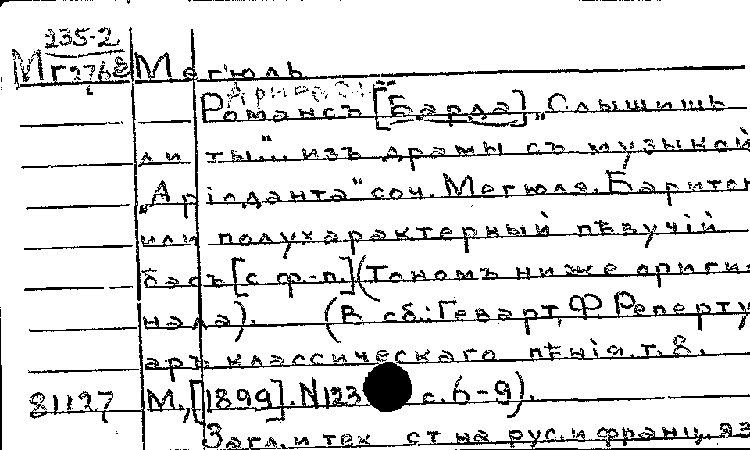 235-2
Мг2768 Мегюль
Романсъ [Барда] „Слышишь
ли ты"... изъ драмы съ музыкой
„Аріоданта" соч. Мегюля. Баритон
или полухарактерный пѣвучій
басъ [с ф.-п.] (Тономъ ниже ориги
нала). (В сб.: Геварт, Ф. Реперту
аръ классическаго пѣнія. т. 8.
81127 М., [1899]. N123 с. 6-9).
Загл. и тек ст на рус. и франц. яз